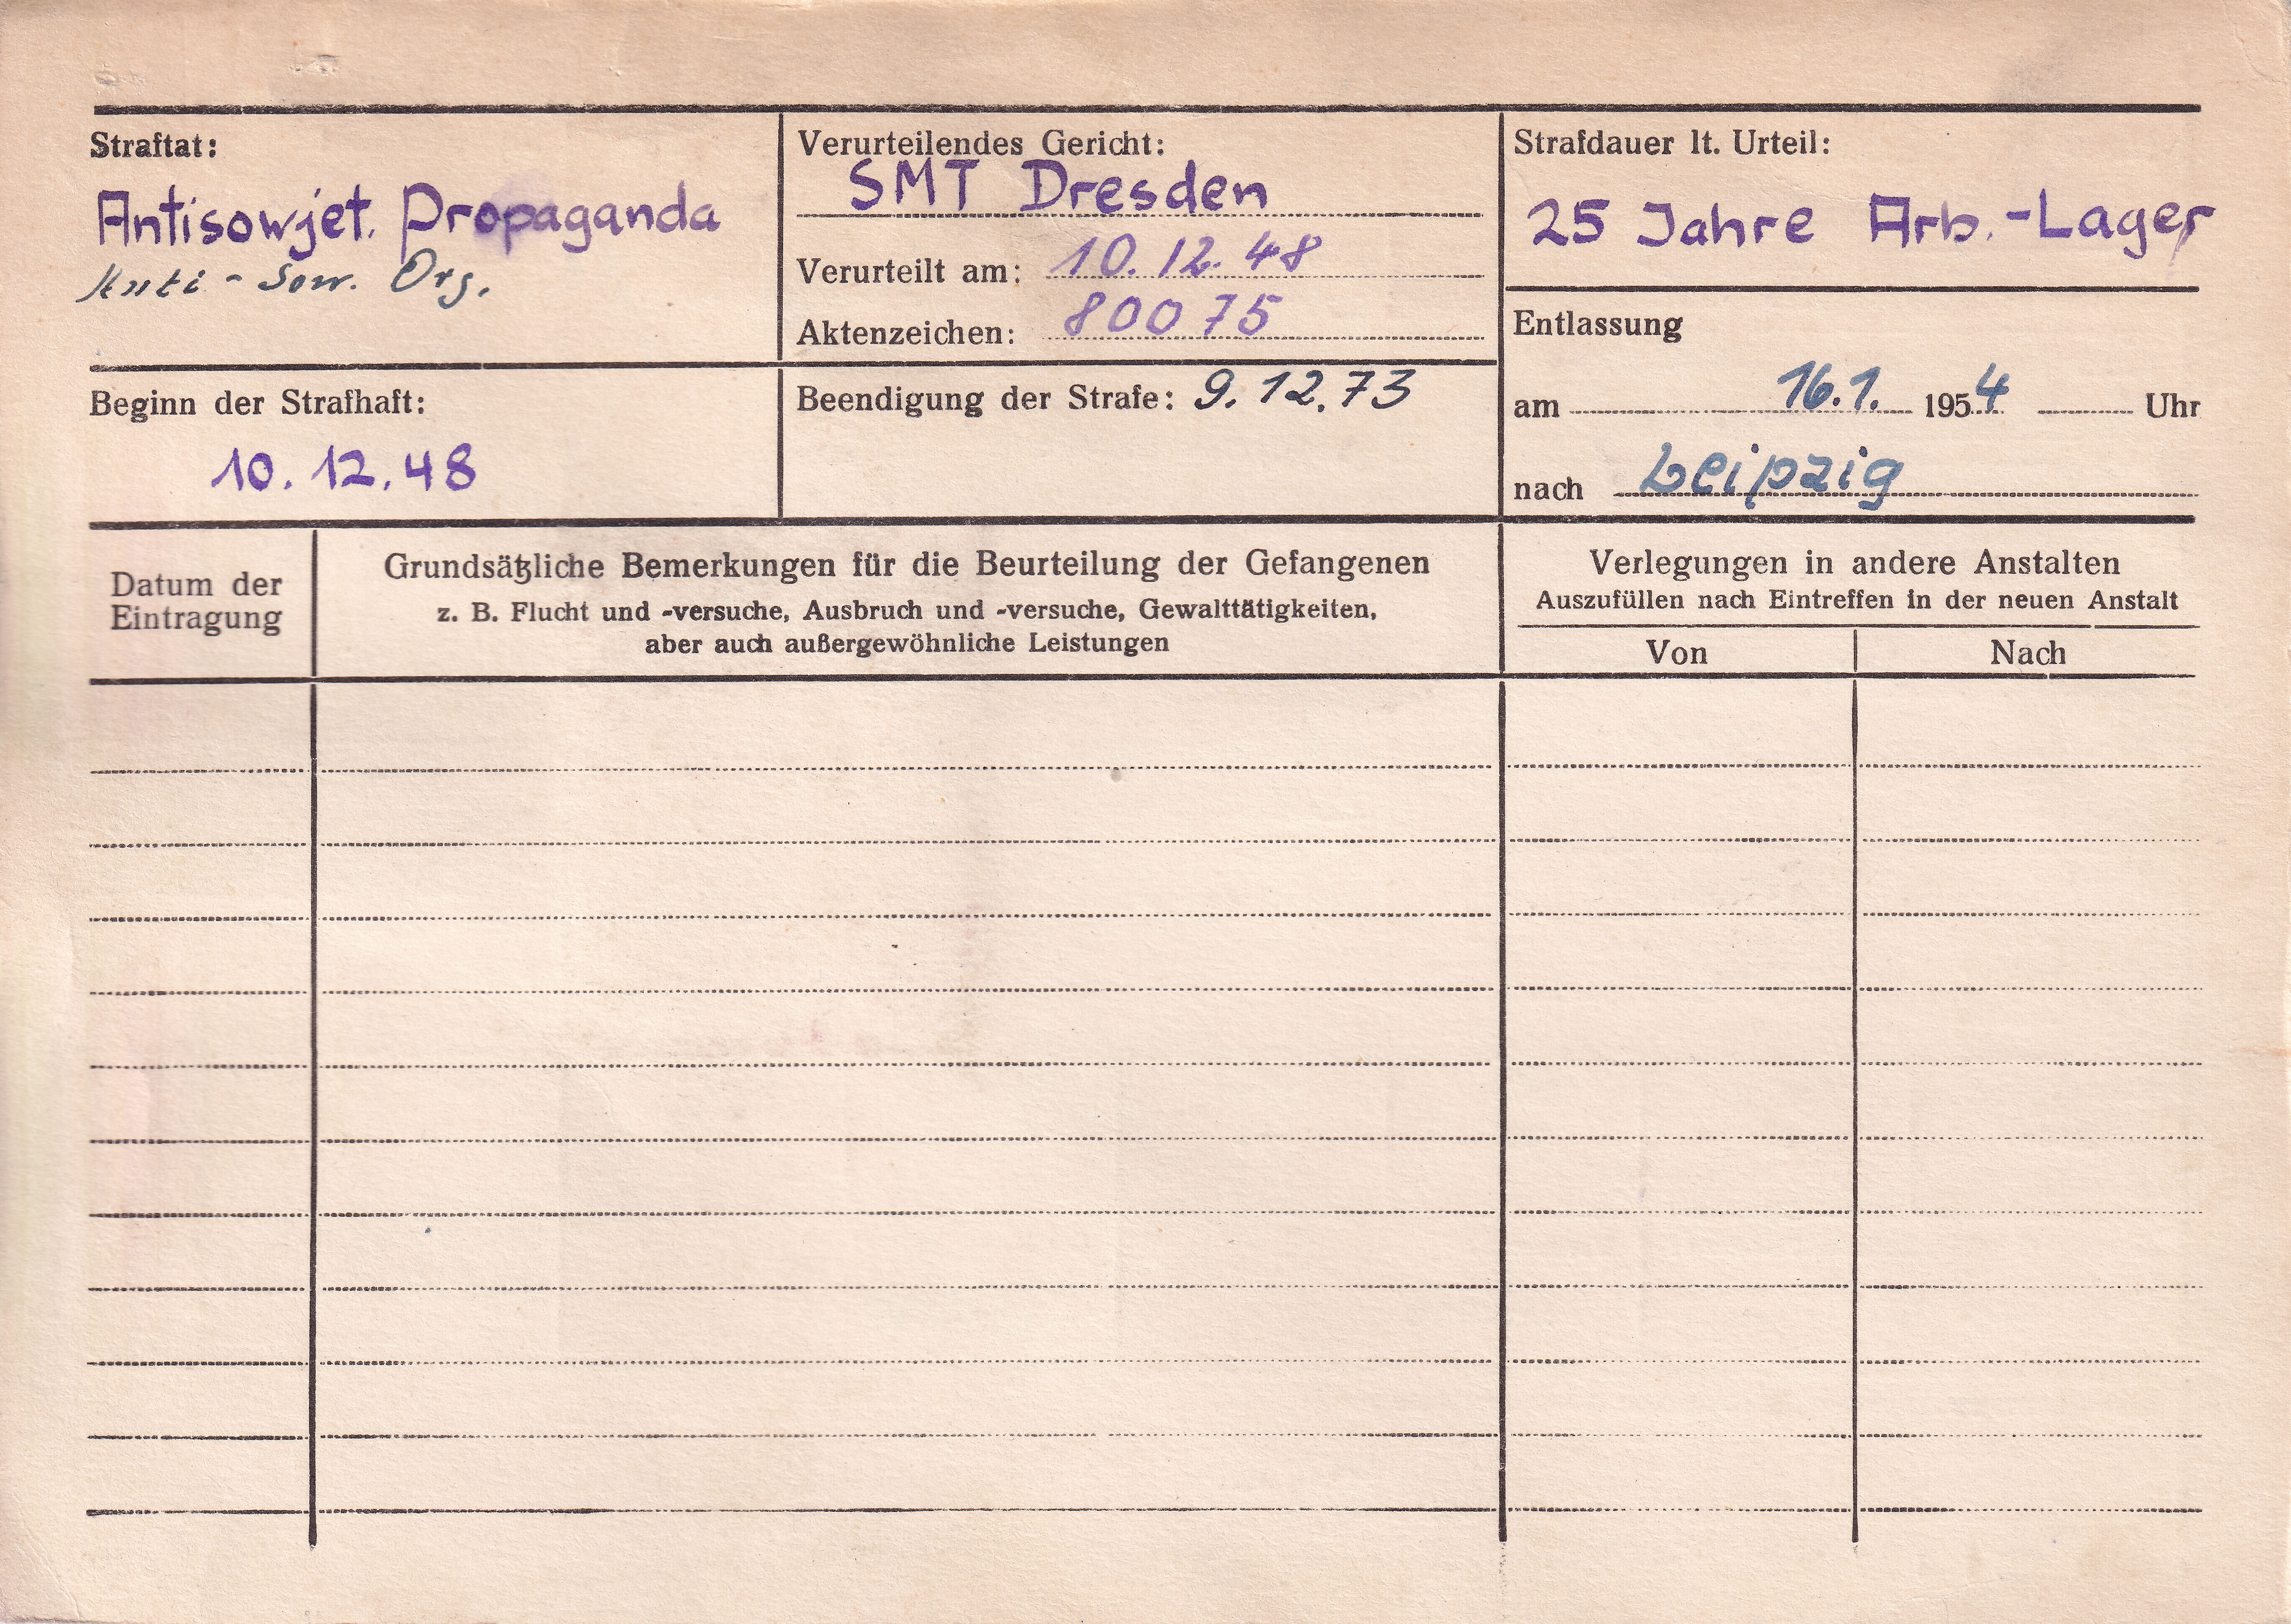 Straftat:
Antisowjet. Propaganda
Anti-Sow. Org.
Verurteilendes Gericht:
SMT Dresden
Verurteilt am: 10.12.48
Aktenzeichen: 80075
Strafdauer lt. Urteil:
25 Jahre Arb.-Lager
Beginn der Strafhaft:
10.12.48
Beendigung der Strafe: 9.12.73
Entlassung
am 16.1. 1954 Uhr
nach Leipzig
Datum der
Eintragung
Grundsätzliche Bemerkungen für die Beurteilung der Gefangenen
z. B. Flucht und -versuche, Ausbruch und -versuche, Gewalttätigkeiten,
aber auch außergewöhnliche Leistungen
Verlegungen in andere Anstalten
Auszufüllen nach Eintreffen in der neuen Anstalt
Von Nach